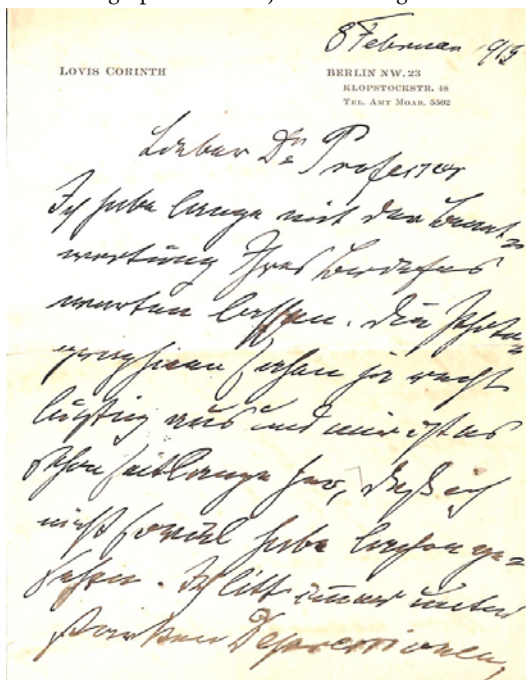 8 Februar 1913
LOVIS CORINTH
BERLIN NW. 23
KLOPSTOCKSTR. 48
TEL. AMT MOAB. 5502
Lieber Dr Professor
Ich habe lange mit der Beant=
wortung Ihres Briefes
warten lassen. Die Photo=
graphieen sehen ja recht
lustig aus und mir ist es
schon seit lange her, daß ich
nicht soviel habe lachen ge=
sehen. Ich litt immer unter
starken Depressionen,